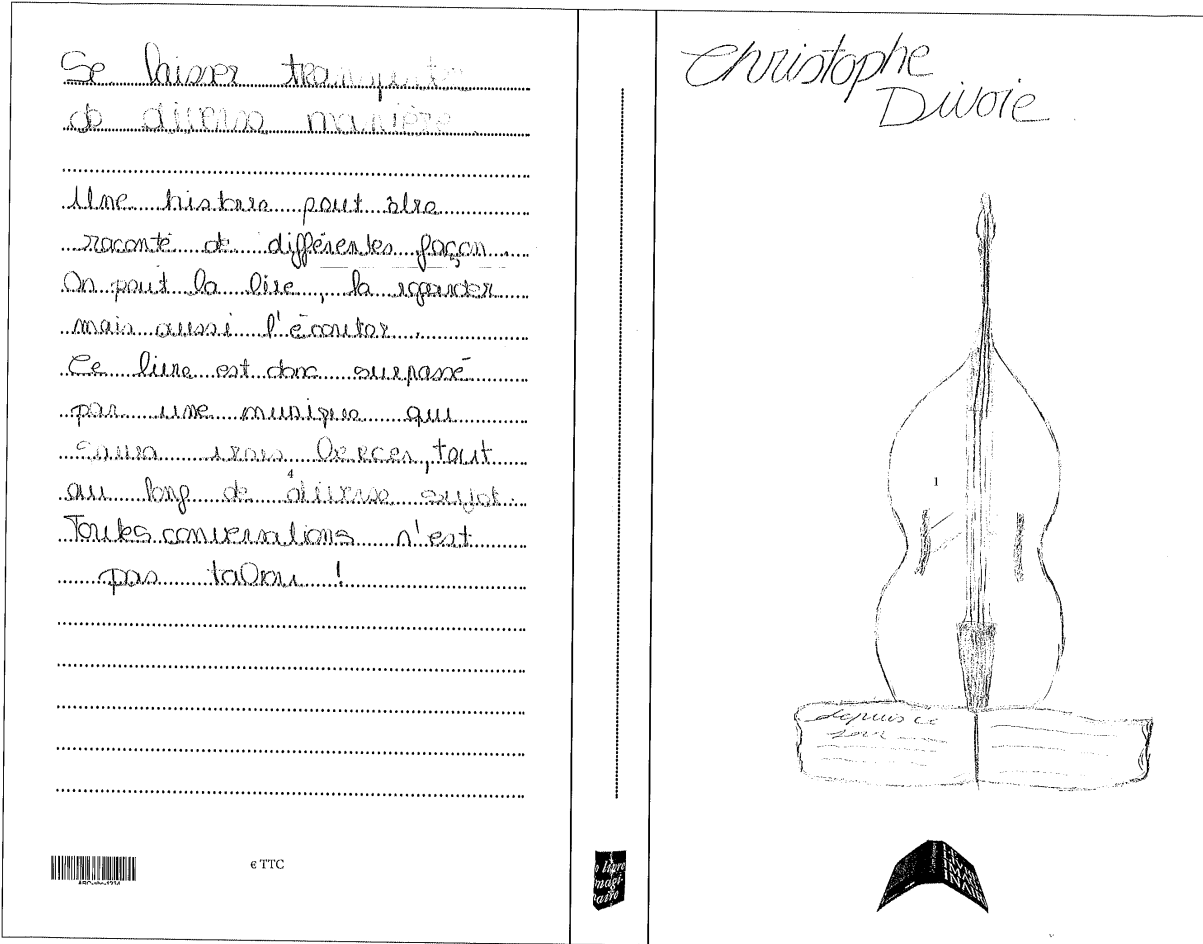 Se laisser transporter
de diverse manière.
Une histoire peut être
raconté de différentes façon.
On peut la lire, la regarder
mais aussi l'écouter.
Ce livre est donc surpassé
par une musique qui
saura vous bercer, tout
au long de diverse sujet.
4
Toutes conversations n'est
pas tabou !
€ TTC
Christophe
Divoie
1
depuis ce